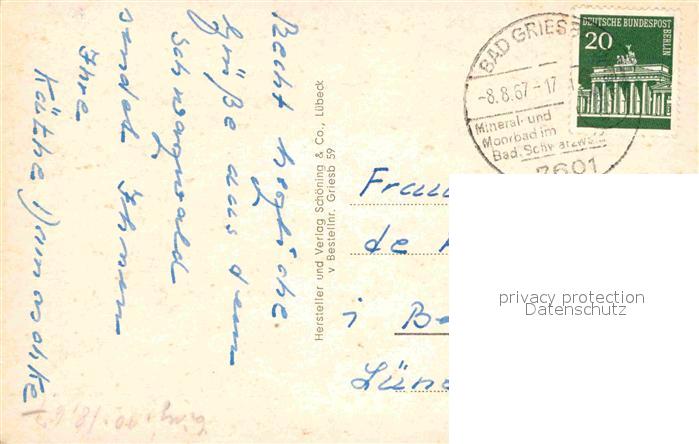 Recht herzliche
Grüße aus dem
Schwarzwald
sendet Ihnen
Ihre
Käthe Damaschke
Hersteller und Verlag Schöning & Co., Lübeck
v Bestellnr. Griesb 59
BAD GRIES
-8.8.67-17
Mineral- und
Moorbad im
Bad. Schwarzwald
7601
DEUTSCHE BUNDESPOST
BERLIN
20
Frau
de
i B
Lün
privacy protection
Datenschutz